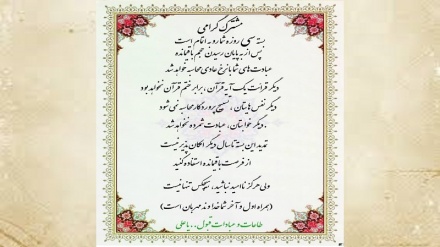 مشترک گرامی
بسته سی روزه شما رو به اتمام است
پس از به پایان رسیدن حجم باقیمانده
عبادت‌های شما با نرخ عادی محاسبه خواهد شد
دیگر قرائت یک آیه قرآن، برابر ختم قرآن نخواهد بود
دیگر نفس هایتان، تسبیح پروردگار محاسبه نمی شود
. دیگر خوابتان، عبادت شمرده نخواهد شد
تمدید این بسته تا سال دیگر امکان پذیر نیست
از فرصت باقیمانده استفاده کنید
ولی هرگز ناامید نباشید، هیچکس تنها نیست
(همراه اول و آخر شما خداوند مهربان است)
طاعات و عبادات قبول . . یا علی